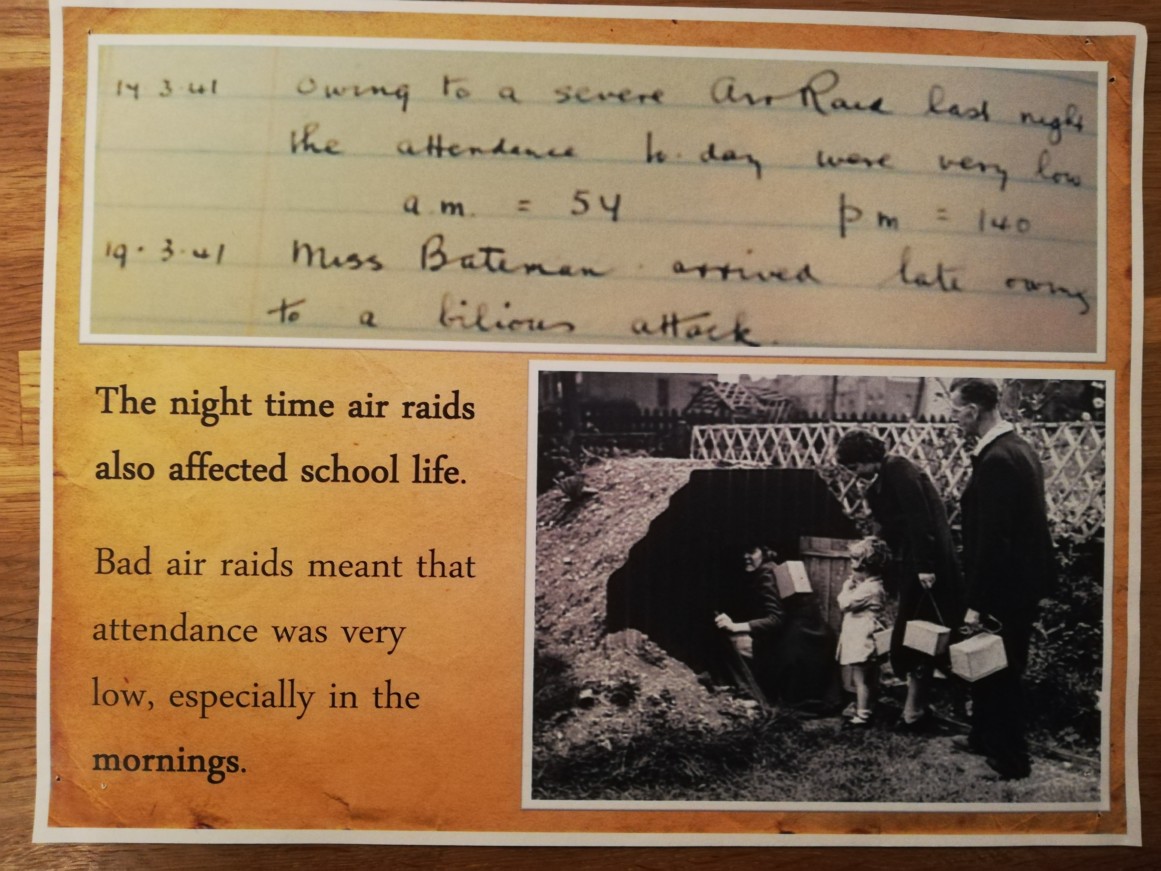 14 3.41 Owing to a severe Air Raid last night
the attendance to-day were very low
a.m. = 54 pm = 140
19.3.41 Miss Bateman arrived late owing
to a bilious attack.
The night time air raids
also affected school life.
Bad air raids meant that
attendance was very
low, especially in the
mornings.